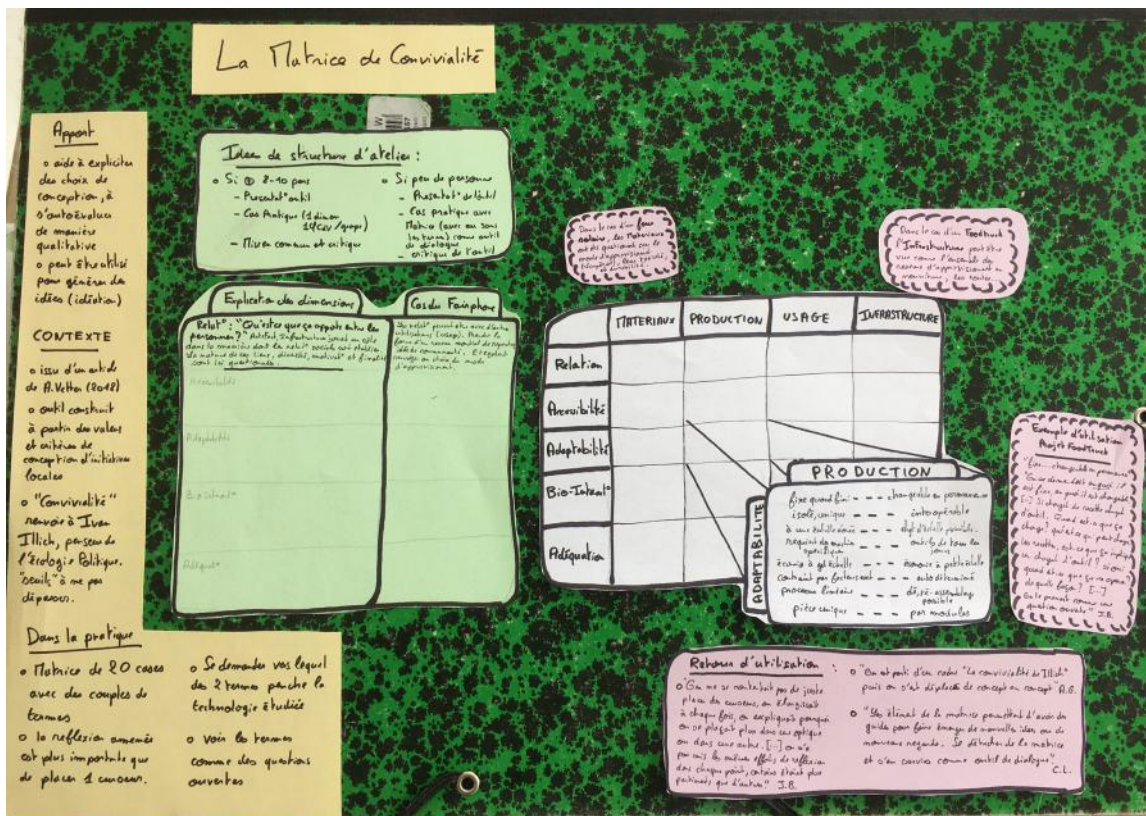 La Matrice de Convivialité
Apport
o aide à expliciter
des choix de
conception, à
s'autoévaluer
de manière
qualitative
o peut être utilisé
pour générer des
idées (idéation)
CONTEXTE
o issu d'un article
de A. Vetter (2018)
o outil construit
à partir des valeurs
et critères de
conception d'initiatives
locales
o "Convivialité"
renvoie à Ivan
Illich, penseur de
l'écologie Politique.
"seuils" à ne pas
dépasser.
Dans la pratique
o Matrice de 20 cases
avec des couples de
termes
o la reflexion amenée
est plus importante que
de placer 1 curseur.
o Se demander vers lequel
des 2 termes penche la
technologie étudiée
o voir les termes
comme des questions
ouvertes
Idées de structure d'atelier :
o Si 8-10 pers
- Présentat° outil
- Cas Pratique (1 dimen
- Mise en commun et critique
o Si peu de personnes
- Présentat° de l'outil
- Cas pratique avec
Matrice (avec ou sans
les termes) comme outil
de dialogue
- critique de l'outil
Explication des dimensions
Relat° : "Qu'est ce que ça apporte entre les
personnes ?" Artefact, Infrastructure jouent un rôle
dans la manière dont les relat° sociales sont établies.
La nature de ces liens, diversité, motivat° et finalité
sont ici questionnés.
Accessibilité
Adaptabilité
Bio Interact°
Adéquat°
Cas du Fairphone
d'approvisionnement.
Dans le cas d'un four
solaire, les Matériaux
ont été questionnés sur le
mode d'approvisionnement
Dans le cas d'un Foodtruck
l'"Infrastructure" peut être
vue comme l'ensemble des
MATERIAUX
PRODUCTION
USAGE
INFRASTRUCTURE
Relation
Accessibilité
Adaptabilité
Bio-Interact°
Adéquation
PRODUCTION
ADAPTABILITE
fixe quand fini - - - changeable en permanence
isolé, unique - - - interopérable
à une échelle donnée - - - chgt d'échelle possible
requiert de machines spécifiques - - - outils de tous les jours
économie à gde échelle - - - économie à petite échelle
contraint par facteurs ext - - - autodéterminé
processus linéaire - - - dé,ré-assemblage possible
pièce unique - - - par modules
Exemple d'utilisation
Projet FoodTruck
"fixe... changeable en permanence"
question ouverte" J.B.
Retours d'utilisation :
o "On ne se contentait pas de juste
placer des curseurs, on élargissait
à chaque fois, on expliquait pourquoi
on se plaçait plus dans une optique
ou dans une autre. [...] on n'a
pas mis les mêmes efforts de reflexion
dans chaque point, certains étaient plus
pertinents que d'autres." J.B.
o "On est parti d'un cadre "la convivialité de Illich"
puis on s'est déplacés de concept en concept" A.G.
o "Les élémts de la matrice permettent d'avoir des
guides pour faire émerger de nouvelles idées ou de
nouveaux regards. Se détacher de la matrice
et s'en servir comme outil de dialogue"
C.L.